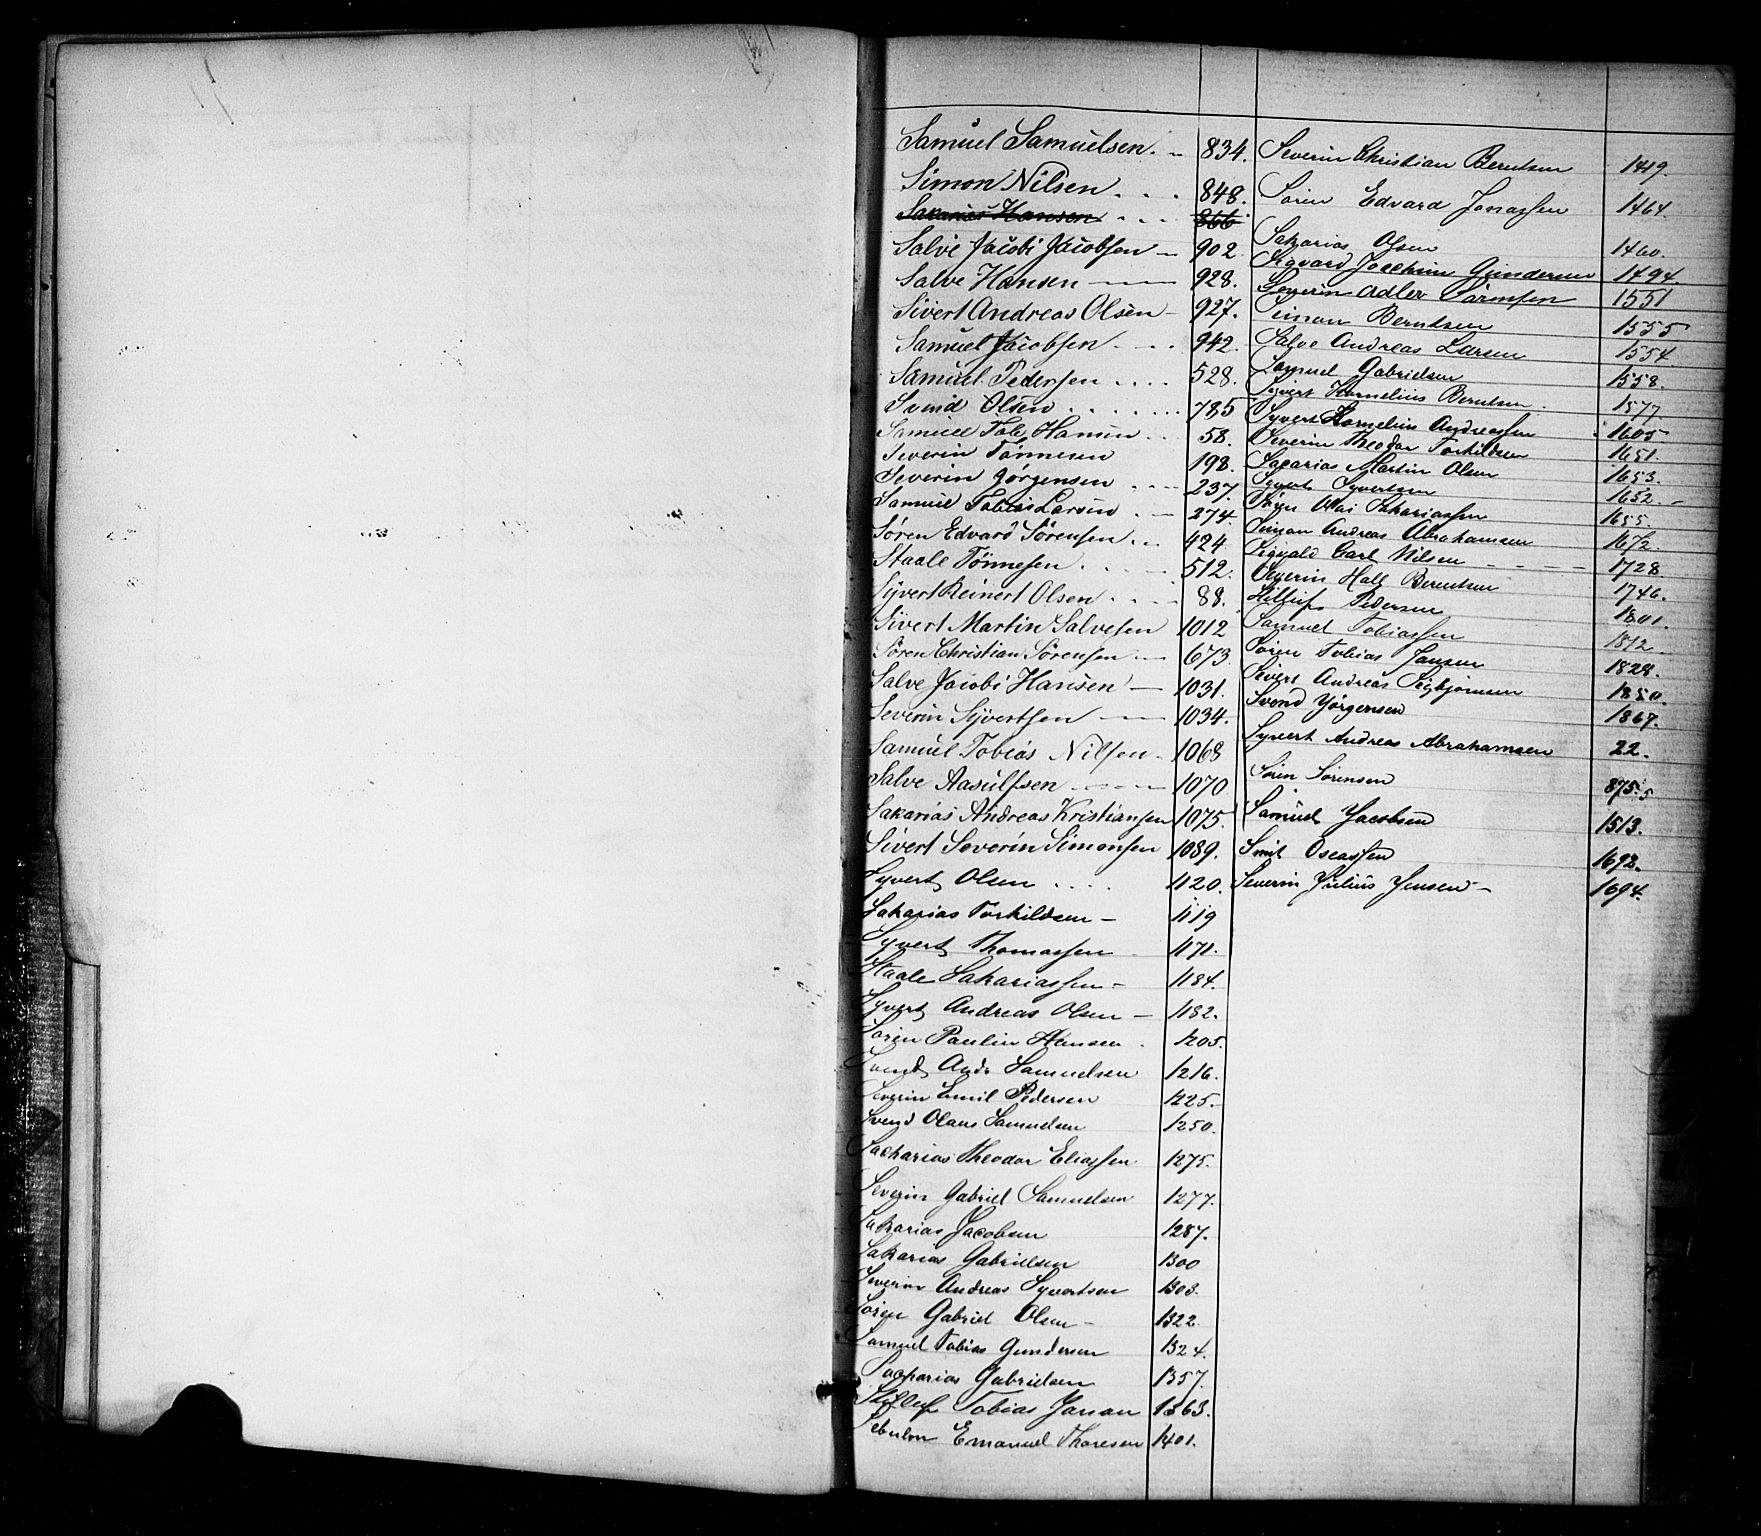 Samuel Samuelsen. 834.
Simon Nilsen 848.
Sakarias Hansen 866
Salve Jacobi Jacobsen 902.
Salve Hansen 928.
Sivert Andreas Olsen 927.
Samuel Jacobsen 942.
Samuel Pedersen 528.
Svend Olsen 785
Samuel Tob. Hansen 58.
Severin Tønnesen 198.
Severin Jørgensen 237.
Samuel Tobias Larsen 274.
Søren Edvard Sørensen 424
Staale Tønnesen 512.
Syvert Reinert Olsen 88.
Sivert Martin Salvesen 1012
Søren Christian Sørensen 673.
Salve Jacobi Hansen 1031.
Severin Syvertsen 1034.
Samuel Tobias Nilsen 1068
Salve Aasulfsen 1070
Sakarias Andreas Kristiansen 1075.
Sivert Severin Simonsen 1089.
Syvert Olsen 1120.
Sakarias Torkildsen 1119
Syvert Thomassen 1171.
Staale Sakariassen 1184.
Syvert Andreas Olsen 1182.
Søren Paulin Hansen 1205.
Svend Andr Samuelsen 1216.
Severin Emil Pedersen 1225.
Svend Olaus Samuelsen 1250.
Sacharias Theodor Eliassen 1275.
Severin Gabriel Samuelsen 1277.
Sakarias Jacobsen 1287.
Sakarias Gabrielsen 1300
Severin Andreas Syvertsen 1303.
Søren Gabriel Olsen 1322
Samuel Tobias Gundersen 1324.
Sacharias Gabrielsen 1357.
Tobias 1363.
Sebulon Emanuel Thoresen 1401.
Severin Christian Berntsen 1419.
Søren Edvard Jonassen 1464.
Sakarias Olsen 1460.
Sigvard Joachim Gundersen 1494.
Severin Adler Sørensen 1551
Simon Berntsen 1555
Salve Andreas Larsen 1554
Samuel Gabrielsen 1558.
Syvert Kornelius Berntsen. 1577
Syvert Kornelius Andreassen 1605
Severin Theodor Torkildsen 1651.
Sacarias Martin Olsen 1653.
Syvert Syvertsen 1652.
Sakariassen 1655.
Simon Andreas Abrahamsen 1672.
Sigvald Carl Nilsen 1728
Severin Hall Berntsen 1746.
Pedersen 1801.
Samuel Tobiassen 1812
Søren Tobias Jansen 1828.
Sivert Andreas Sigbjørnsen 1850.
Svend Yørgensen 1867.
Syvert Andreas Abrahamsen 22.
Sørin Sørensen 875.
Samuel Yacobsen 1513.
Smit Oseassen 1692.
Severin Yulius Yensen 1694.